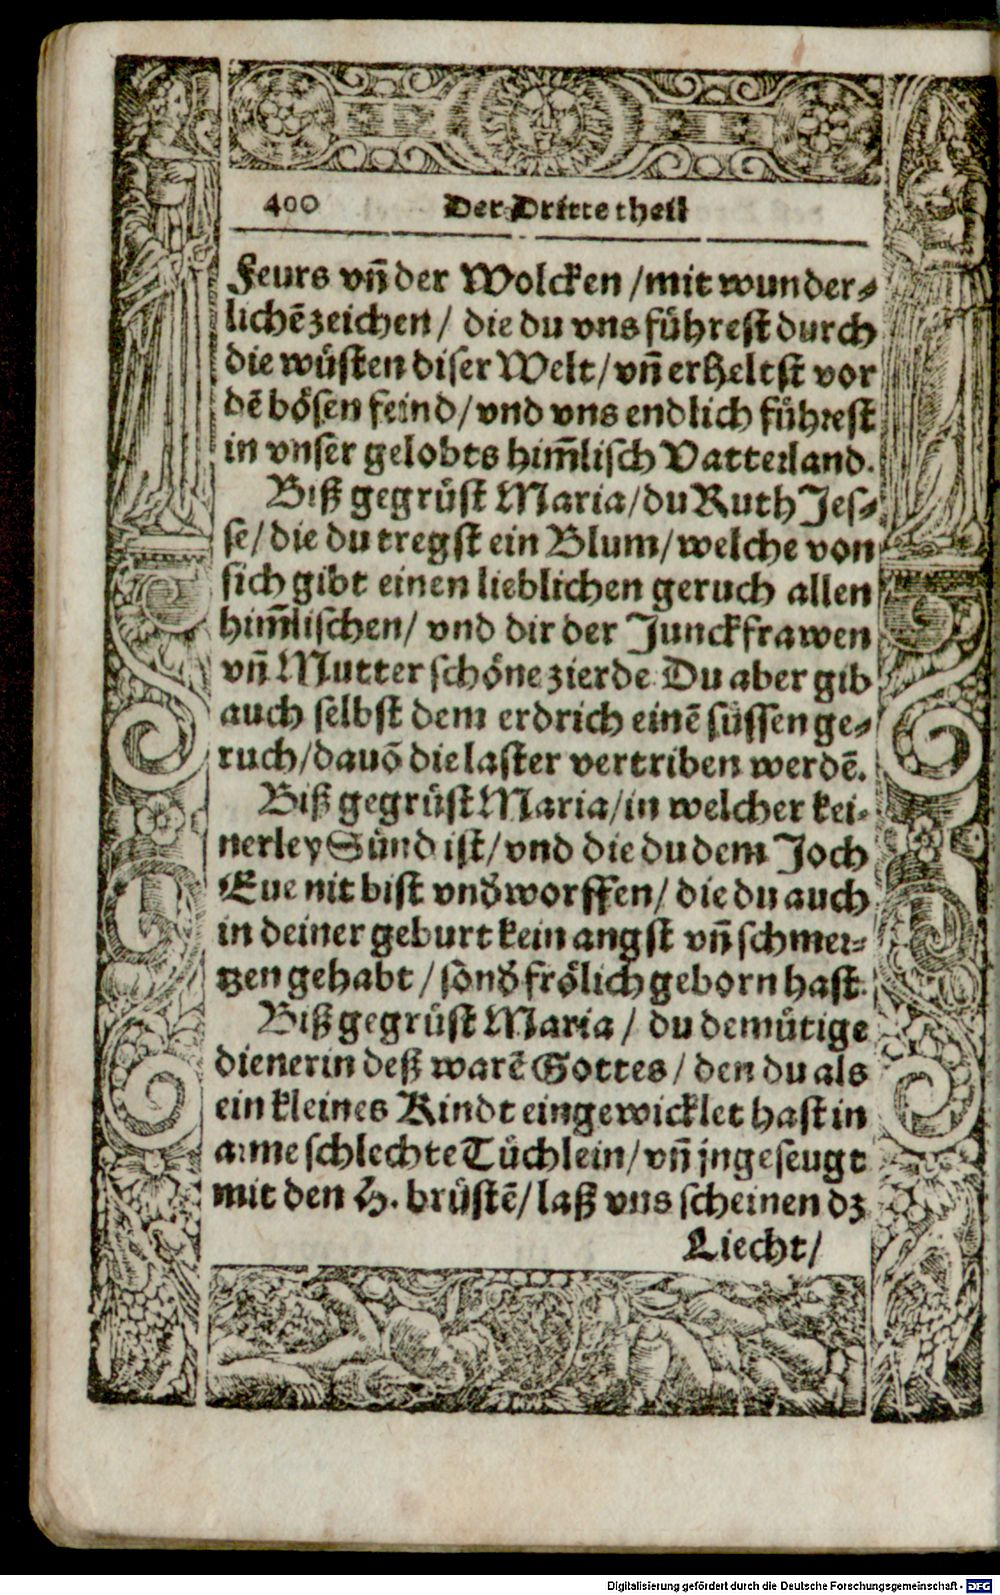 400 Der Dritte theil
Feurs vñ der Wolcken /mit wunder⸗
lichē zeichen / die du vns fuͤhrest durch
die wuͤsten diser Welt/vñ erheltst vor
dē boͤsen feind/vnd vns endlich fuͤhrest
in vnser gelobts him̄lisch Vatterland.
Biß gegruͤst Maria/du Ruth Jes⸗
se/die du tregst ein Blum/welche von
sich gibt einen lieblichen geruch allen
him̄lischen/ vnd dir der Junckfrawen
vñ Mutter schoͤne zierde. Du aber gib
auch selbst dem erdrich einē suͤssen ge⸗
ruch/dauō die laster vertriben werdē.
Biß gegruͤst Maria/in welcher kei⸗
nerley Suͤnd ist/vnd die du dem Joch
Eue nit bist vnd̕worffen/ die du auch
in deiner geburt kein angst vñ schmer⸗
tzen gehabt /sōnd̕ froͤlich geborn hast.
Biß gegruͤst Maria / du demuͤtige
dienerin deß warē Gottes / den du als
ein kleines Kindt eingewicklet hast in
arme schlechte Tuͤchlein/vñ jngeseugt
mit den H. bruͤstē/laß vns scheinen dz
Liecht/
Digitalisierung gefördert durch die Deutsche Forschungsgemeinschaft - DFG